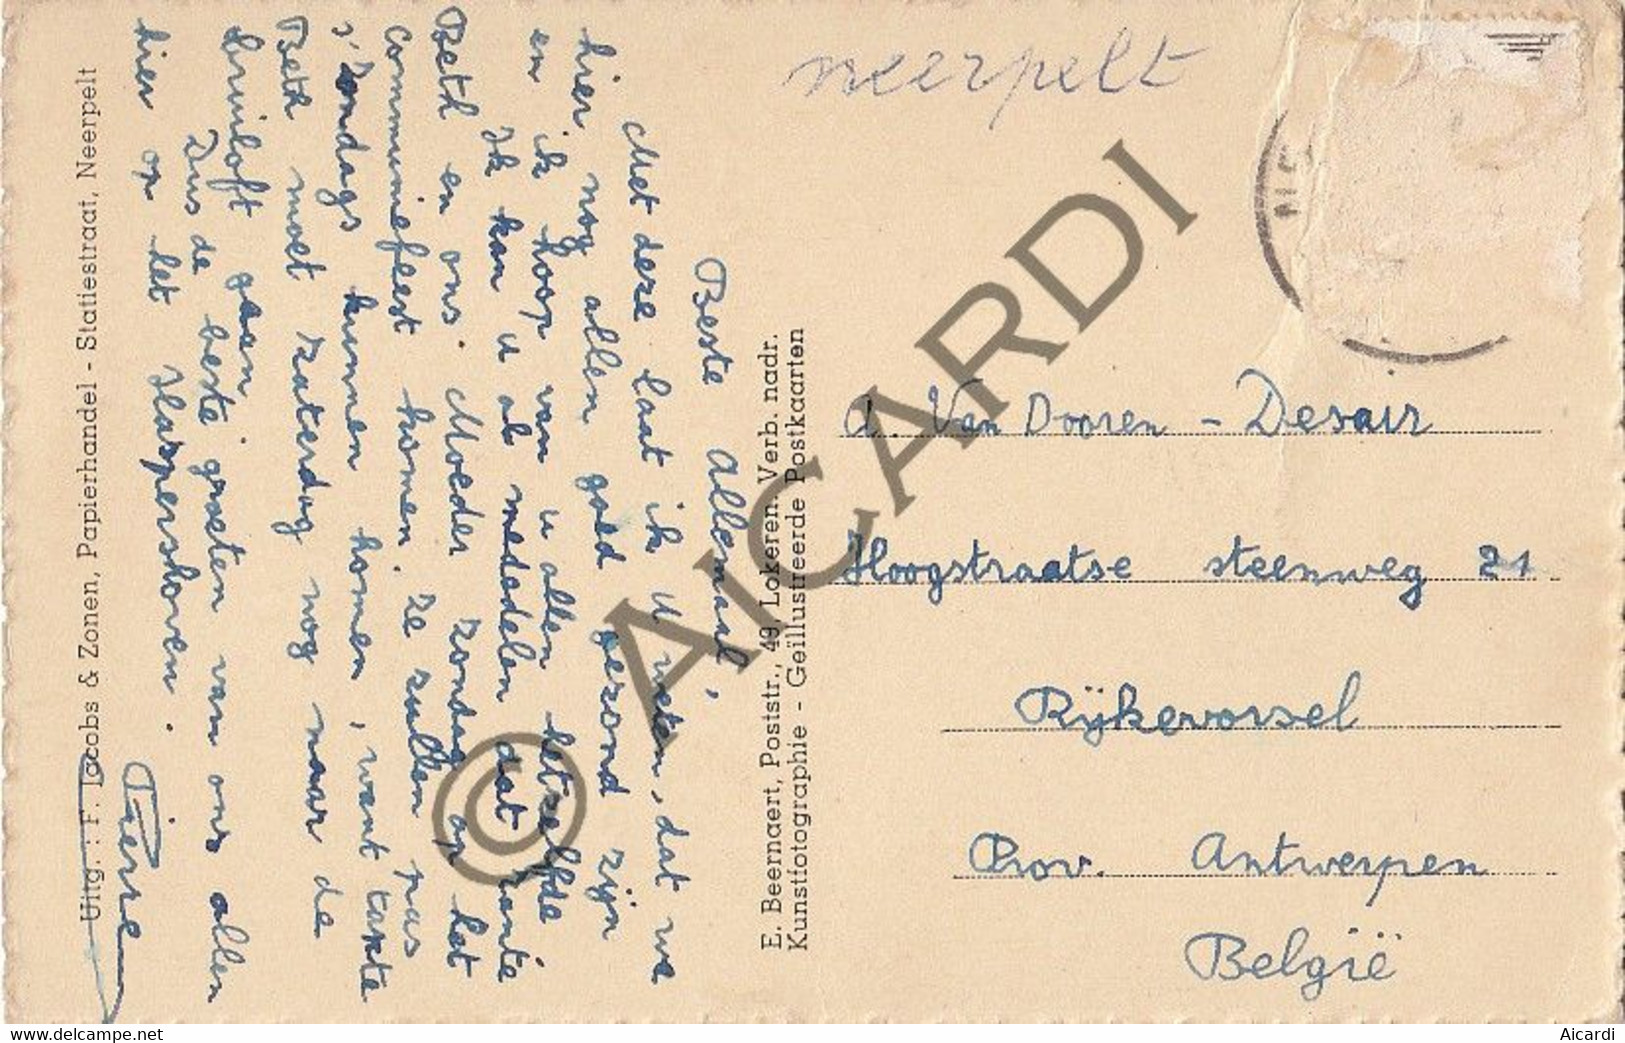 neerpelt
Beste Allemaal,
Met deze laat ik u weten, dat we
hier nog allen goed gezond zijn
en ik hoop van u allen hetzelfde
Ik kan u ok mededelen dat tante
Beth en ons Moeder zondag op het
communiefeest komen. Ze zullen pas
s'Zondags kunnen komen, want tante
Beth moet zaterdag nog naar de
bruiloft gaan
Dus de beste groeten van ons allen
hier op let Harpershoven.
Pierre
Uitg. : F. Jacobs & Zonen, Papierhandel - Statiestraat, Neerpelt
E. Beernaert, Poststr., 49, Lokeren. Verb. nadr.
Kunstfotographie - Geïllustreerde Postkaarten
A. Van Dooren - Desair
Hoogstraatse steenweg 21
Rijkevorsel
Prov. Antwerpen
België
© AICARDI
delcampe.net
Aicardi